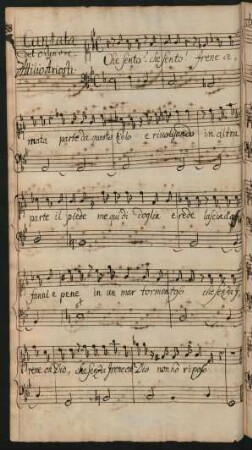 Cantata
Del Signore
Attilio Ariosti
Che sento che sento Irene a,
mata parte da questo suolo e rivolgendo in altra
parte il piede me qui di doglia erede lascia
e pene in un mar tormentoso che senza
Irene oh Dio, che senza Irene oh Dio non ho riposo